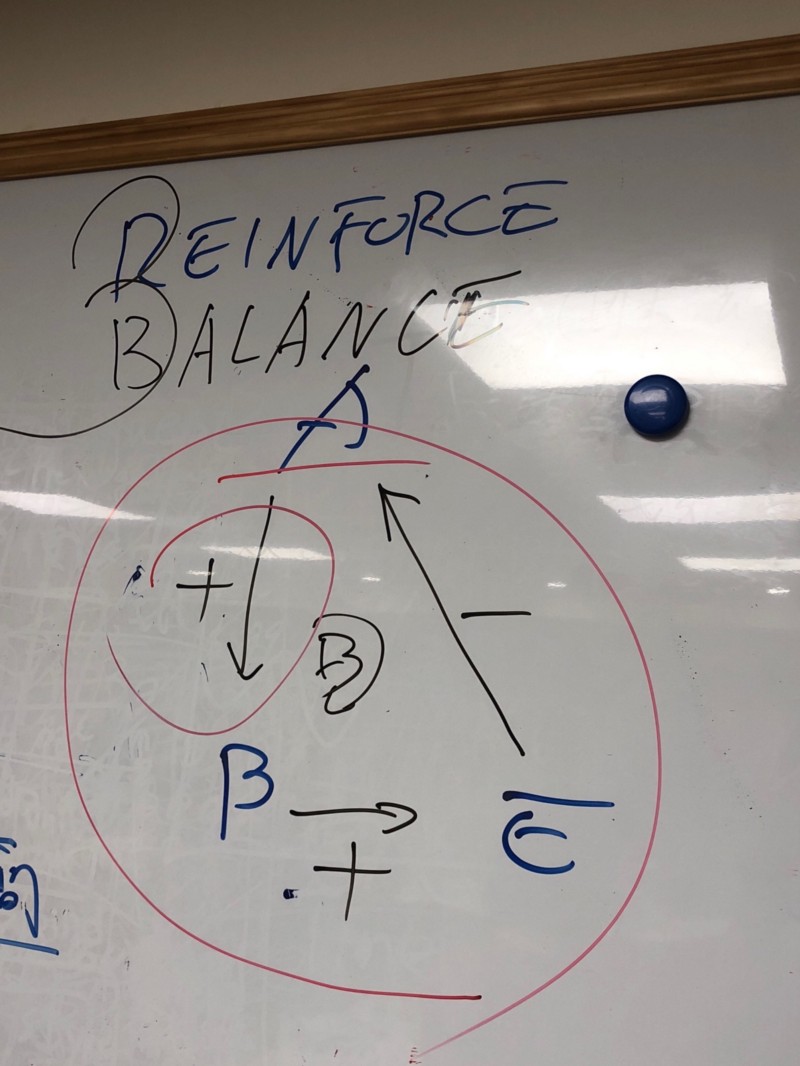 REINFORCE
BALANCE
A
+
B
−
β
→
+
C